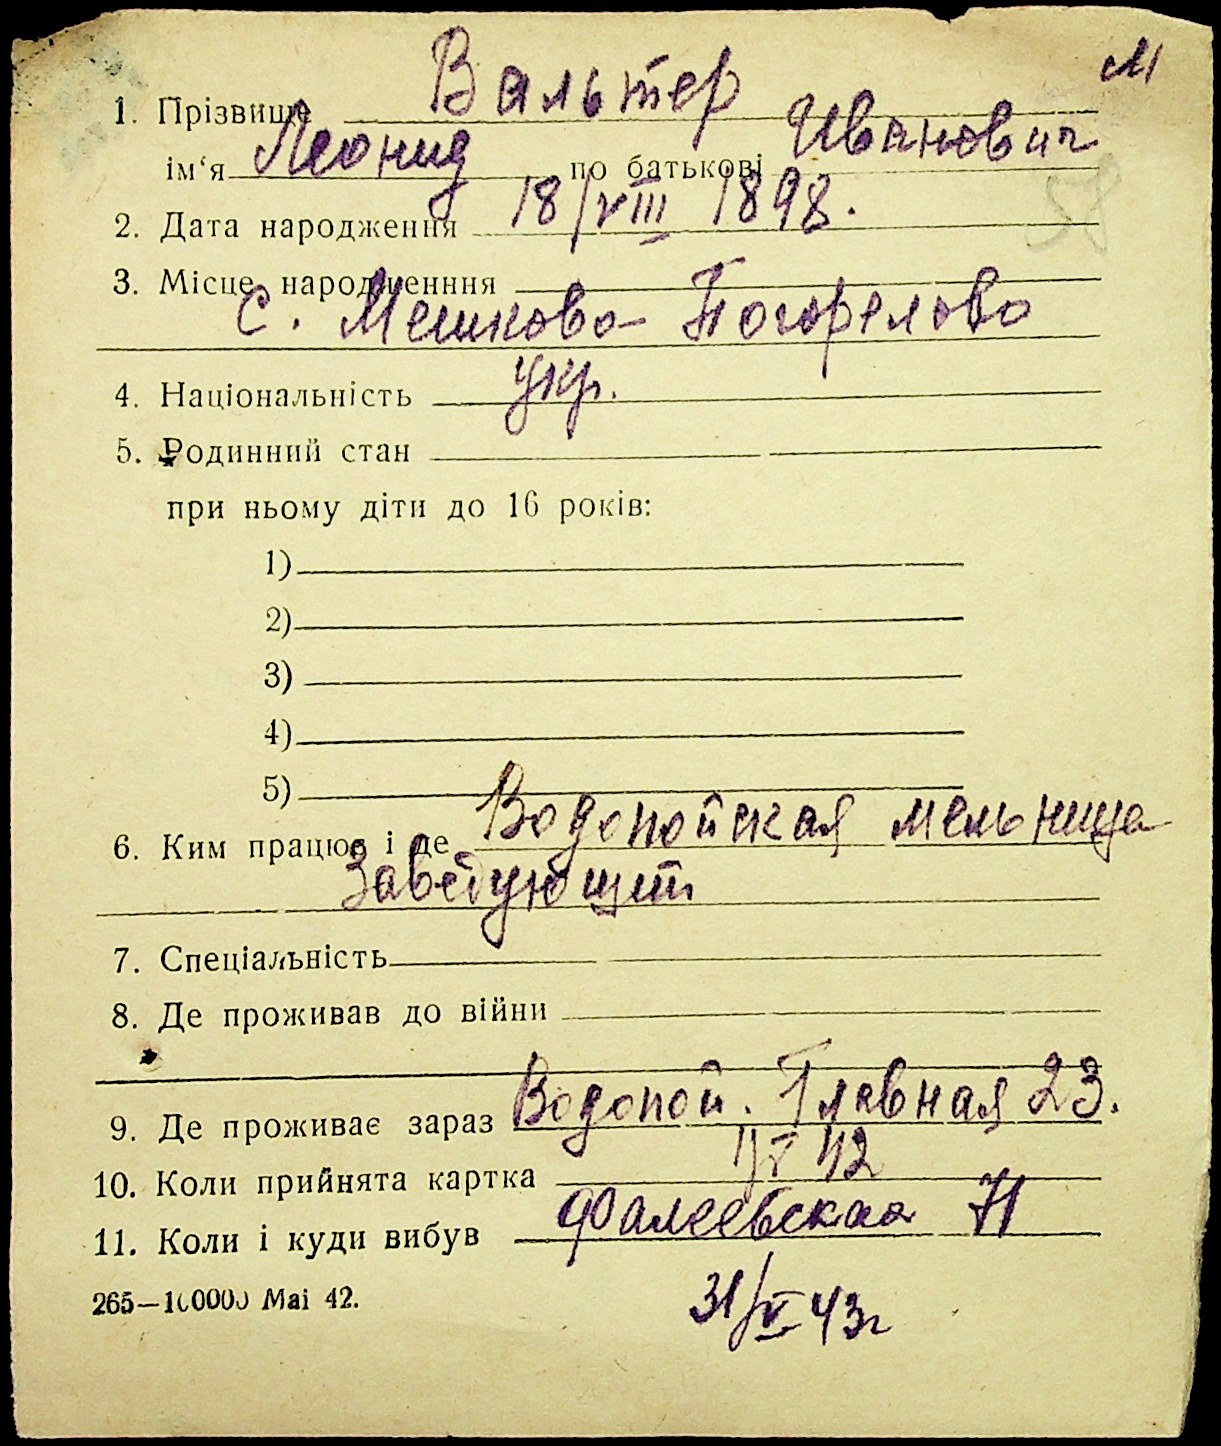 м
1. Прізвище Вальтер
ім‘я Леонид по батькові Иванович
58
2. Дата народження 18/VIII 1898.
3. Місце народженння
с. Мешково-Погорелово
4. Національність укр.
5. Родинний стан
при ньому діти до 16 років:
1)
2)
3)
4)
5)
6. Ким працює і де Водопойская мельница
Заведующий
7. Спеціальність
8. Де проживав до війни
9. Де проживає зараз Водопой. Главная 23.
10. Коли прийнята картка 1/V 42
11. Коли і куди вибув Фалеевская 71
265—100000 Mai 42.
31/V 43г